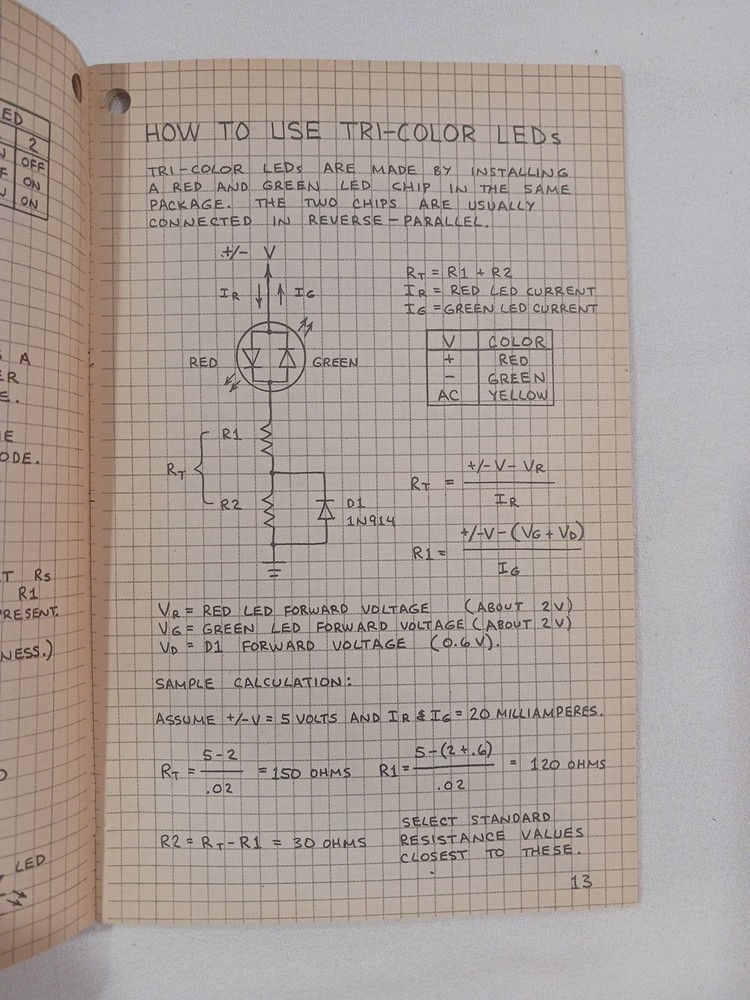 ED
2
OFF
ON
ON
A
ER
E.
E
ODE.
T Rs
R1
PRESENT.
NESS.)
LED
HOW TO USE TRI-COLOR LEDs
TRI-COLOR LEDs ARE MADE BY INSTALLING
A RED AND GREEN LED CHIP IN THE SAME
PACKAGE. THE TWO CHIPS ARE USUALLY
CONNECTED IN REVERSE-PARALLEL.
+/- V
IR IG
RED GREEN
R1
RT
R2
D1
1N914
RT = R1 + R2
IR = RED LED CURRENT
IG = GREEN LED CURRENT
V COLOR
+ RED
- GREEN
AC YELLOW
RT = +/-V - VR
IR
R1 = +/-V - (VG + VD)
IG
VR = RED LED FORWARD VOLTAGE (ABOUT 2V)
VG = GREEN LED FORWARD VOLTAGE (ABOUT 2V)
VD = D1 FORWARD VOLTAGE (0.6V).
SAMPLE CALCULATION:
ASSUME +/-V = 5 VOLTS AND IR & IG = 20 MILLIAMPERES.
RT = 5-2 / .02 = 150 OHMS R1 = 5-(2+.6) / .02 = 120 OHMS
R2 = RT - R1 = 30 OHMS
SELECT STANDARD
RESISTANCE VALUES
CLOSEST TO THESE.
13